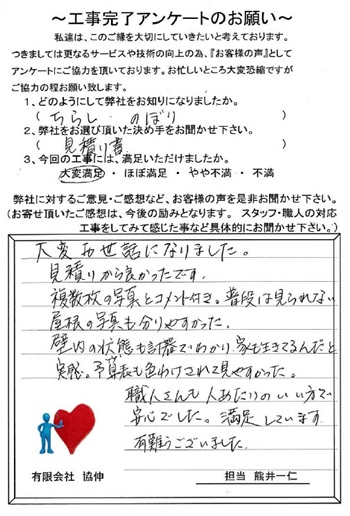 ～工事完了アンケートのお願い～
私達は、このご縁を大切にしていきたいと考えております。
つきましては更なるサービスや技術の向上の為、『お客様の声』として
アンケートにご協力を頂いております。お忙しいところ大変恐縮ですが
ご協力の程お願い致します。
1、どのようにして弊社をお知りになりましたか。
( ちらし のぼり )
2、弊社をお選び頂いた決め手をお聞かせ下さい。
( 見積り書 )
3、今回の工事には、満足いただけましたか。
大変満足 ・ ほぼ満足 ・ やや不満 ・ 不満
弊社に対するご意見・ご感想など、お客様の声を是非お聞かせ下さい。
(お寄せ頂いたご感想は、今後の励みとなります。 スタッフ・職人の対応
工事をしてみて感じた事など具体的にお聞かせ下さい。)
大変お世話になりました。
見積りから良かったです.
複数枚の写真とコメント付き。普段は見られない
屋根の写真も分りやすかった.
壁内の状態も計器でわかり、家も生きてるんだと
実感。予算表も色わけされて見やすかった。
職人さんも人あたりのいい方で
安心でした。満足しています
有難うございました.
有限会社 協伸
担当 熊井一仁